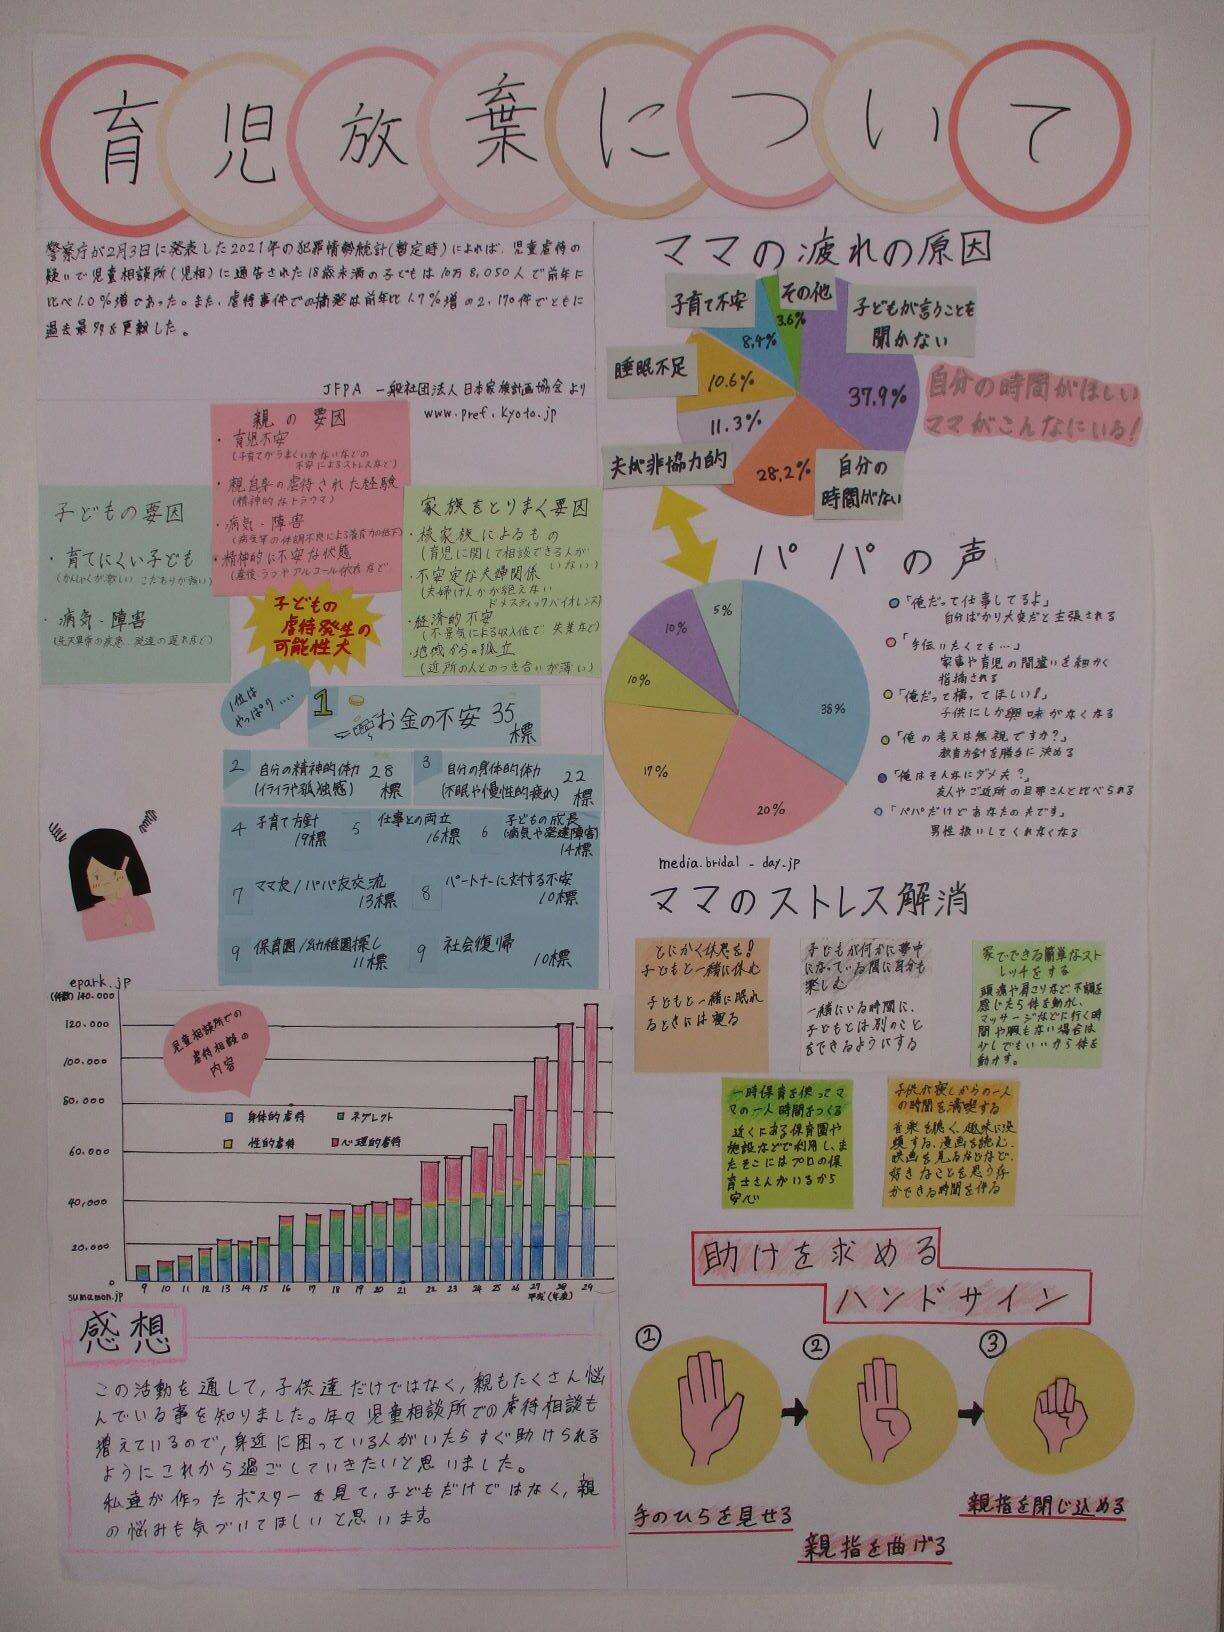 育児放棄について
警察庁が2月3日に発表した2021年の犯罪情勢統計(暫定時)によれば、児童虐待の
疑いで児童相談所(児相)に通告された18歳未満の子どもは10万8,050人で前年に
比べ1.0%増であった。また、虐待事件での摘発は前年比1.7%増の2,170件でともに
過去最多を更新した。
JFPA 一般社団法人日本家族計画協会より
www.pref.kyoto.jp
親の要因
・育児不安
(子育てがうまくいかないなどの
不安によるストレスなど)
・親自身の虐待された経験
(精神的なトラウマ)
・病気・障害
・精神的に不安な状態
(産後うつやアルコール依存など)
子どもの要因
・育てにくい子ども
(かんしゃくが激しい こだわりが強い)
・病気・障害
(先天異常の疾患、発達の遅れなど)
家族をとりまく要因
・核家族によるもの
(育児に関して相談できる人が
いない)
・不安定な夫婦関係
(夫婦げんかが絶えない
ドメスティックバイオレンス)
・経済的不安
(不景気による収入低下、失業など)
・地域からの孤立
(近所の人とのつき合いが薄い)
子どもの
虐待発生の
可能性大
1位は
やっぱり....
1 お金の不安 35標
2 自分の精神的体力 28標
(イライラや孤独感)
3 自分の身体的体力 22標
(不眠や慢性的疲れ)
4 子育て方針 19標
5 仕事との両立 16標
6 子どもの成長
(病気や発達障害) 14標
7 ママ友/パパ友交流 13標
8 パートナーに対する不安 10標
9 保育園/幼稚園探し 11標
9 社会復帰 10標
epark.jp
(件数)
140,000
120,000
100,000
80,000
60,000
40,000
20,000
0
児童相談所での
虐待相談の
内容
身体的虐待 ネグレクト
性的虐待 心理的虐待
9 10 11 12 13 14 15 16 17 18 19 20 21 22 23 24 25 26 27 28 29
平成(年度)
sumamon.jp
感想
この活動を通して、子供達だけではなく、親もたくさん悩
んでいる事を知りました。年々児童相談所での虐待相談も
増えているので、身近に困っている人がいたらすぐ助けられる
ようにこれから過ごしていきたいと思いました。
私達が作ったポスターを見て、子どもだけではなく、親
の悩みも気づいてほしいと思います。
ママの疲れの原因
子育て不安
その他
子どもが言うことを
聞かない
睡眠不足
夫が非協力的
自分の
時間がない
3.6%
8.4%
10.6%
11.3%
28.2%
37.9%
自分の時間がほしい
ママがこんなにいる!
パパの声
5%
10%
10%
17%
20%
38%
「俺だって仕事してるよ」
自分ばかり大変だと主張される
「手伝いたくても…」
家事や育児の間違いを細かく
指摘される
「俺だって構ってほしい!」
子供にしか興味がなくなる
「俺の考えは無視ですか?」
教育方針を勝手に決める
「俺はそんなにダメ夫?」
友人やご近所の旦那さんと比べられる
「パパだけどあなたの夫です」
男性扱いしてくれなくなる
media.bridal-day.jp
ママのストレス解消
とにかく休息を!
子どもと一緒に休む
子どもと一緒に眠れ
るときには寝る
子どもが何かに夢中
になっている間に自分も
楽しむ
一緒にいる時間に、
子どもとは別のこと
をできるようにする
家でできる簡単なスト
レッチをする
頭痛や肩こりなど不調を
感じたら体を動かし、
マッサージなどに行く時
間や暇もない場合は
少しでもいいから体を
動かす。
一時保育を使ってマ
マの一人時間をつくる
近くにある保育園や
施設などで利用し、ま
たそこにはプロの保
育士さんがいるから
安心
子供が寝てからの一人
の時間を満喫する
音楽を聴く、趣味に没
頭する、漫画を読む、
映画を見るなどなど、
好きなことを思う存
分できる時間を作る
助けを求める
ハンドサイン
① ② ③
手のひらを見せる
親指を曲げる
親指を閉じ込める